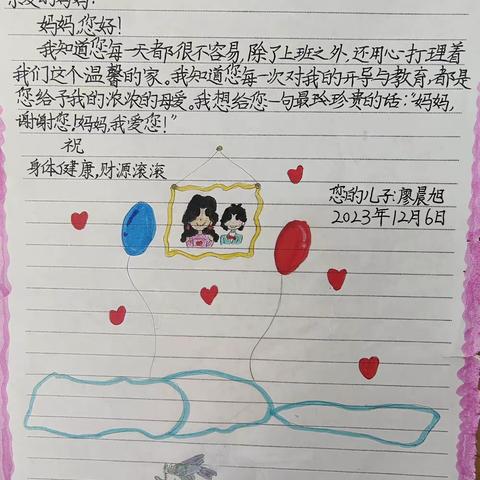 亲爱的妈妈:
妈妈,您好!
我知道您每一天都很不容易,除了上班之外,还用心打理着
我们这个温馨的家。我知道您每一次对我的开导与教育,都是
您给予我的浓浓的母爱。我想给您一句最玲珍贵的话:“妈妈,
谢谢您!妈妈,我爱您!”
祝
身体健康,财源滚滚
您的儿子:廖晨旭
2023年12月6日